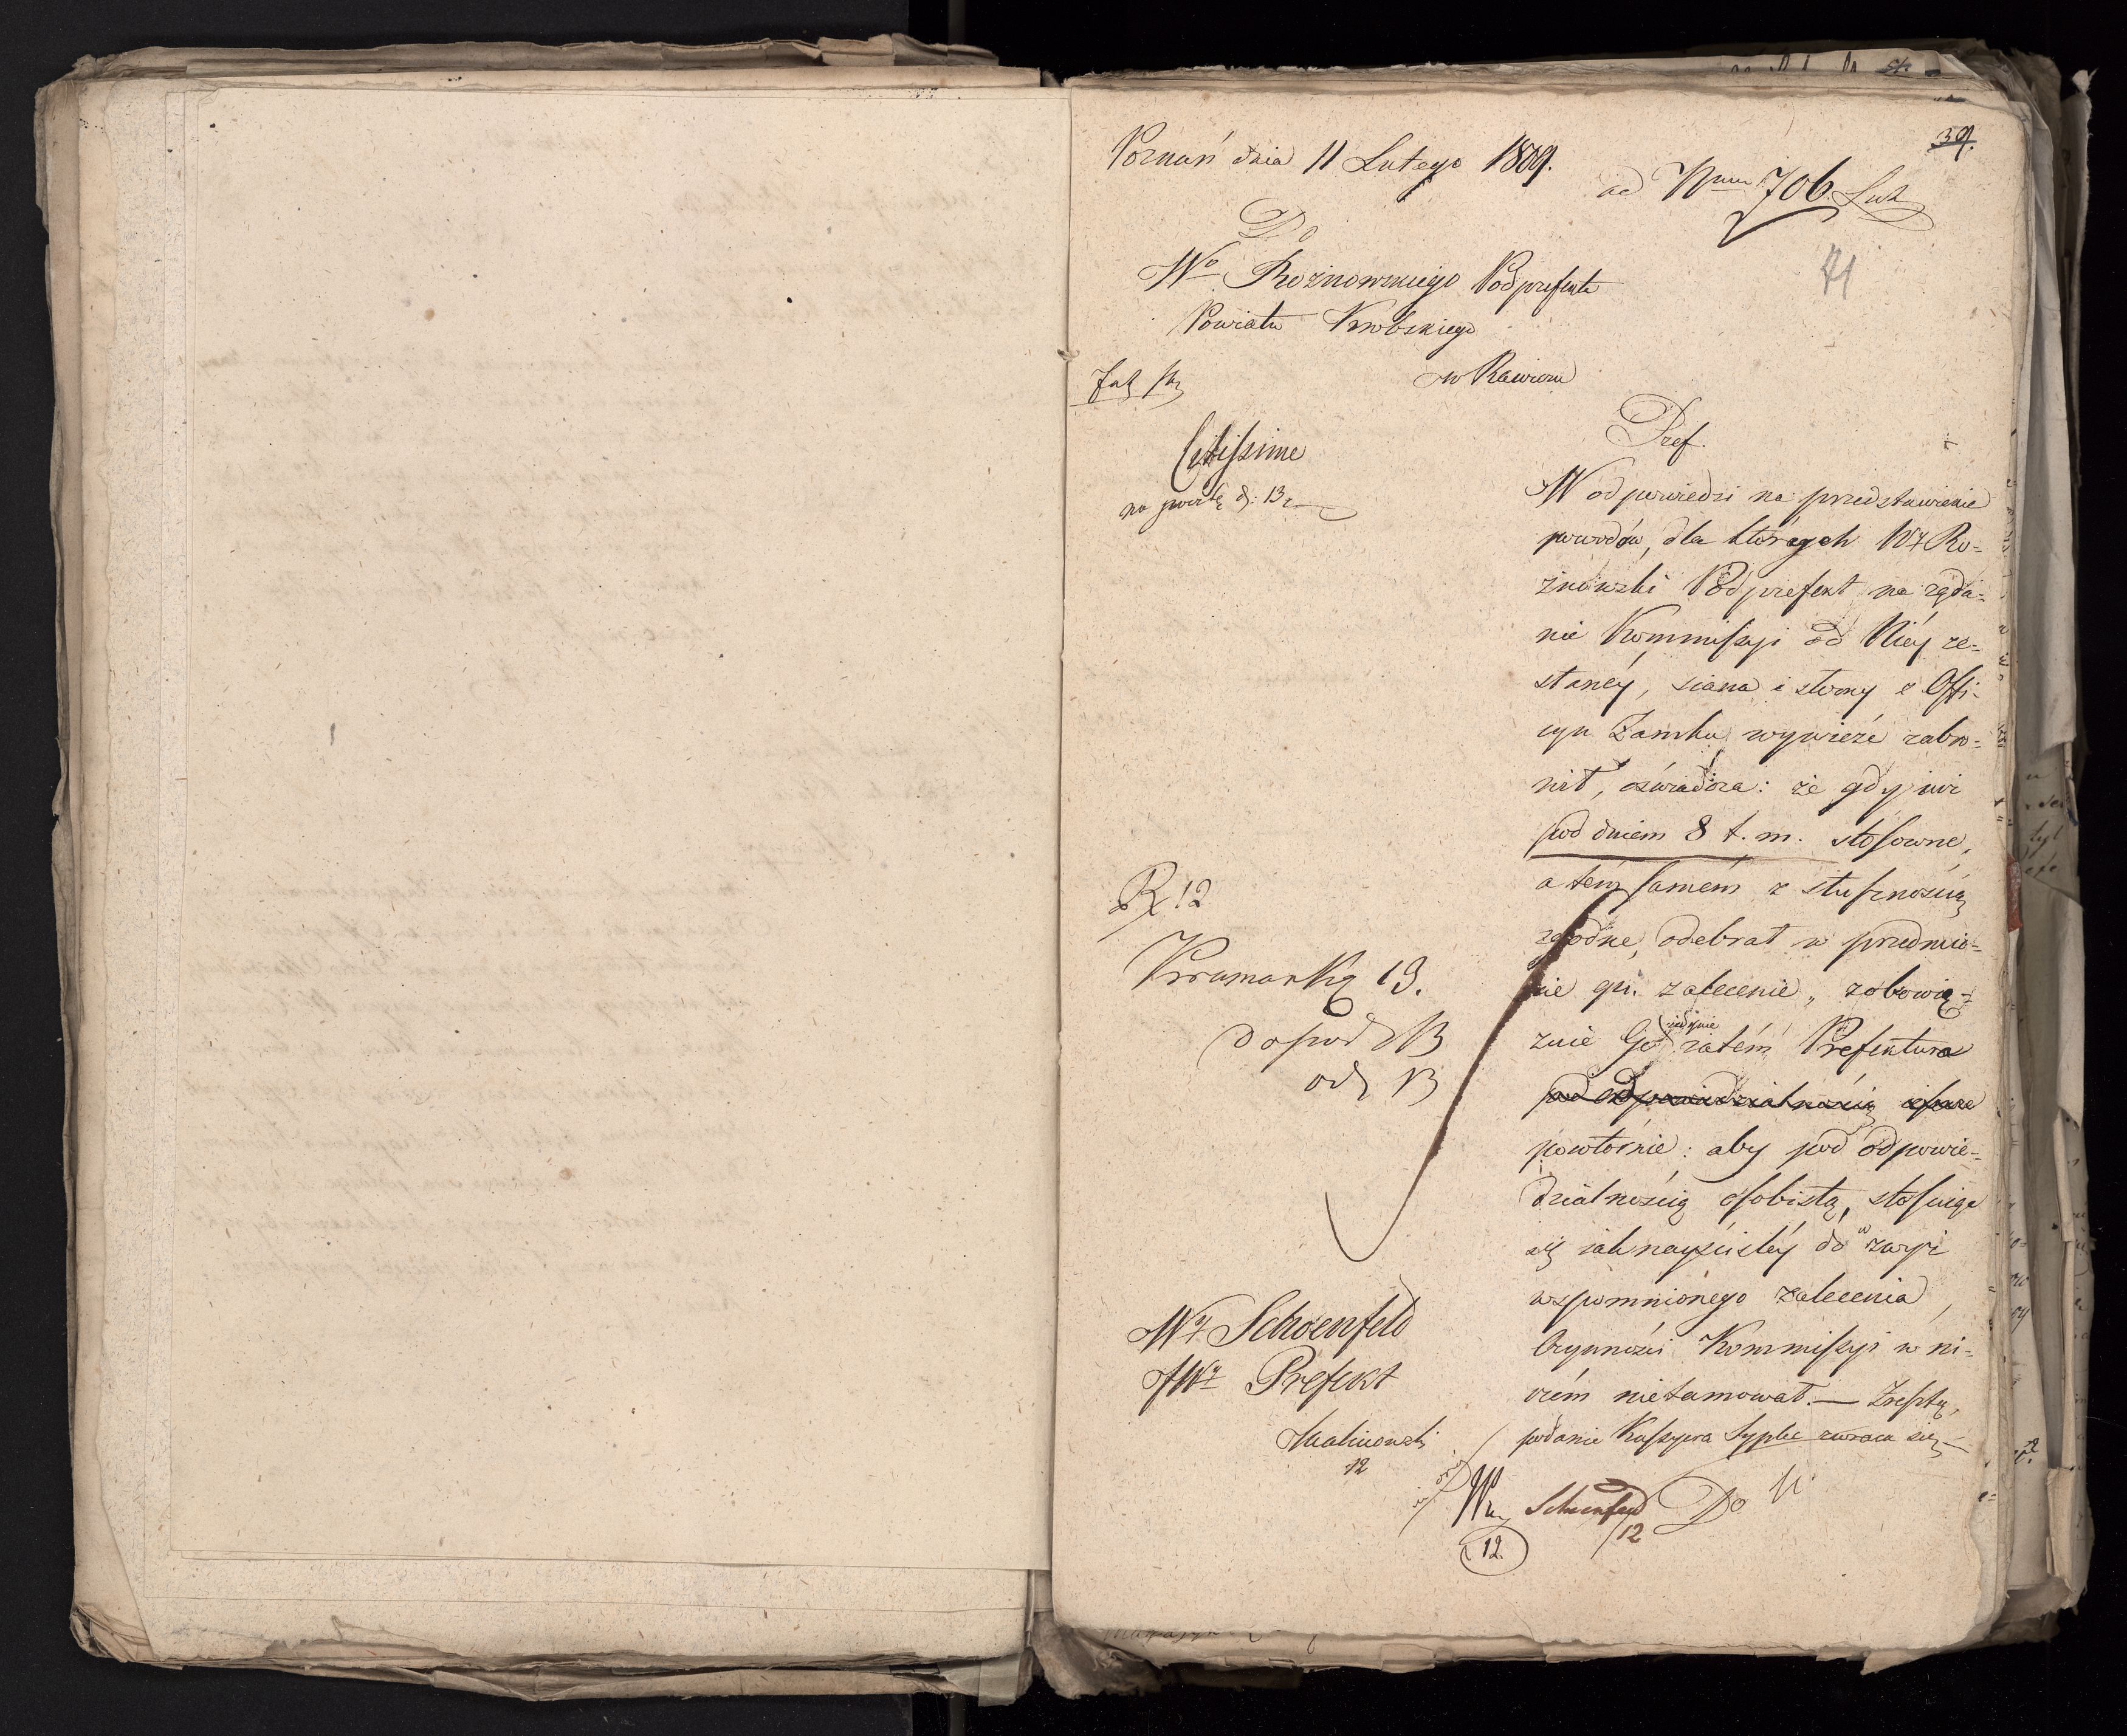 39.
Poznań dnia 11 Lutego 1809.
ad Num 706 Lut
71
Do
Wo Roznowskiego Podprefekta
Powiatu Krobskiego
w Rawiczu
Citissime
na pocztę d: 13
Pref.
W odpowiedzi na przedstawienie
powodów, dla których WJ Ro-
żnowski Podprefekt na żąda-
nie Kommissyi od Niéy ze-
stanéy, siana i słomy z Offi-
cyn Zamku wywieźć zabro-
nił, oświadcza: że gdy iuż
pod dniem 8 t. m. stosowne,
a tém samém z słusznością
zgodne, odebrał w przedmio-
cie qu. zalecenie, zobowią-
zuie Go iedynie zatém Prefektura
powtórnie: aby pod odpowie-
dzialnością osobistą, stosuiąc
się iaknayściśléy do w zwyż
wspomnionego zalecenia,
Czynności Kommissyi w ni-
czém nietamował. — Zresztą,
podanie Kassyera Sypke zwraca się
R 12
Krumanką 13.
do pod 13
od 13
WJ Schoenfeld
JWJ Prefekt
Malinowski
12
Schoenfeld
12
12